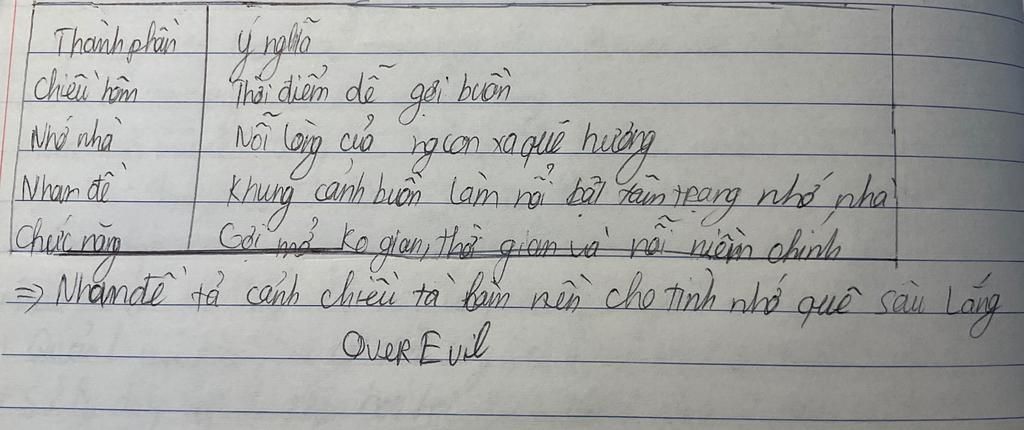 Thành phần Ý nghĩa
Chiều hôm Thời điểm dễ gợi buồn
Nhớ nhà Nỗi lòng của ng con xa quê hương
Nhan đề Khung cảnh buồn làm nổi bật tâm trạng nhớ nhà
Chức năng Gợi mở ko gian, thời gian và nỗi niềm chính
⇒ Nhan đề tả cảnh chiều tà làm nền cho tình nhớ quê sâu lắng
OVER Evil